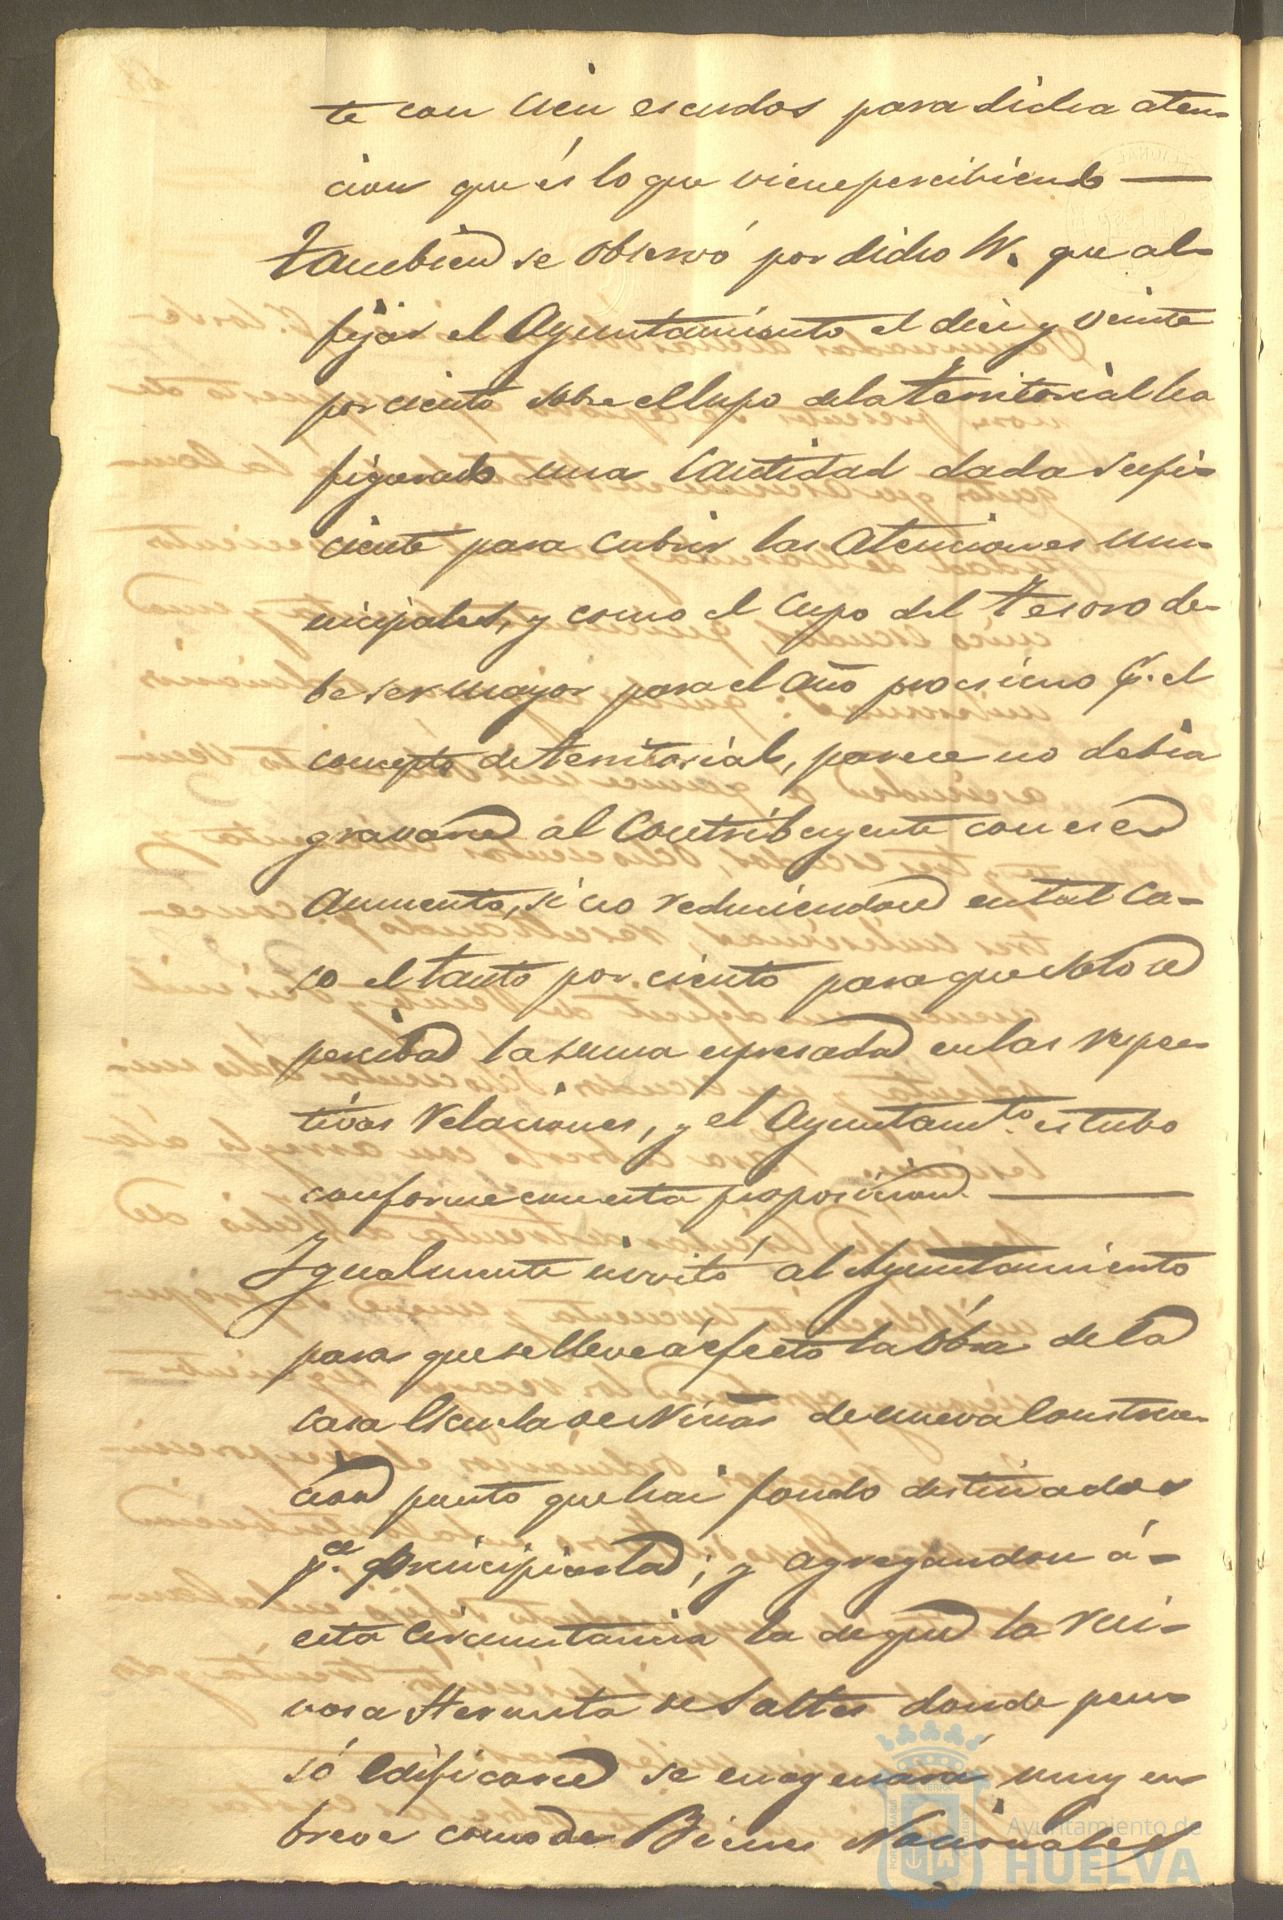 te con cien escudos para dicha aten-
cion que és lo que viene percibiendo —
Tambien se observó por dicho W. que al
fijar el Ayuntamiento el diez y veinte
por ciento sobre el cupo de la territorial ha
figurado una Cantidad dada sufi-
ciente para cubrir las atenciones mu-
nicipales, y como el Cupo del Tesoro de-
be ser mayor para el año procsimo pr. el
concepto de territorial, parece no debia
gravarse al Contribuyente con ese
aumento, si no reduciendose en tal ca-
so el tanto por ciento para que solo se
perciba la suma espresada en las respec-
tivas relaciones, y el Ayuntamto. estubo
conforme con esta proposicion. —
Igualmente invitó al Ayuntamiento
para que se lleve á efecto la obra de la
Casa Escuela de Niñas de nueva Construc-
cion puesto que hai fondo destinados
pa. principiarla; y agregandose á-
esta circunstancia la de que la rui-
nosa Hermita de Saltes donde pen-
só edificarse se enagenará muy en
breve como de Bienes Nacionales
Ayuntamiento de
HUELVA